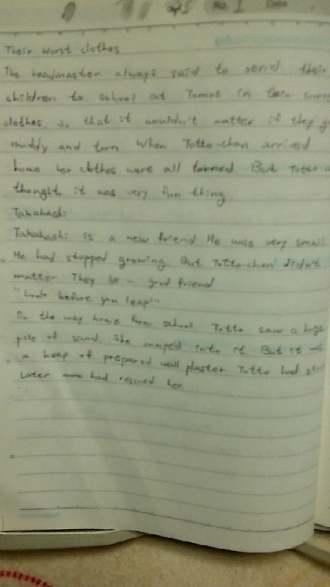 No. 1 Date
Their worst clothes
The headmaster always said to send their
children to school at Tomoe in their worst
clothes, so that it wouldn't matter if they g
muddy and torn When Totto-chan arrived
home her clothes were all torned But Totto-c
thought it was very fun thing
Takahashi
Takahashi is a new friend He was very small
He had stopped growing But Totto-chan didn't
matter They be a good friend
"Look before you leap!"
On the way home from school, Totto saw a huge
pile of sand, She jumped into it But it was
a heap of prepared wall plaster Totto had st
Later mom had rescued her